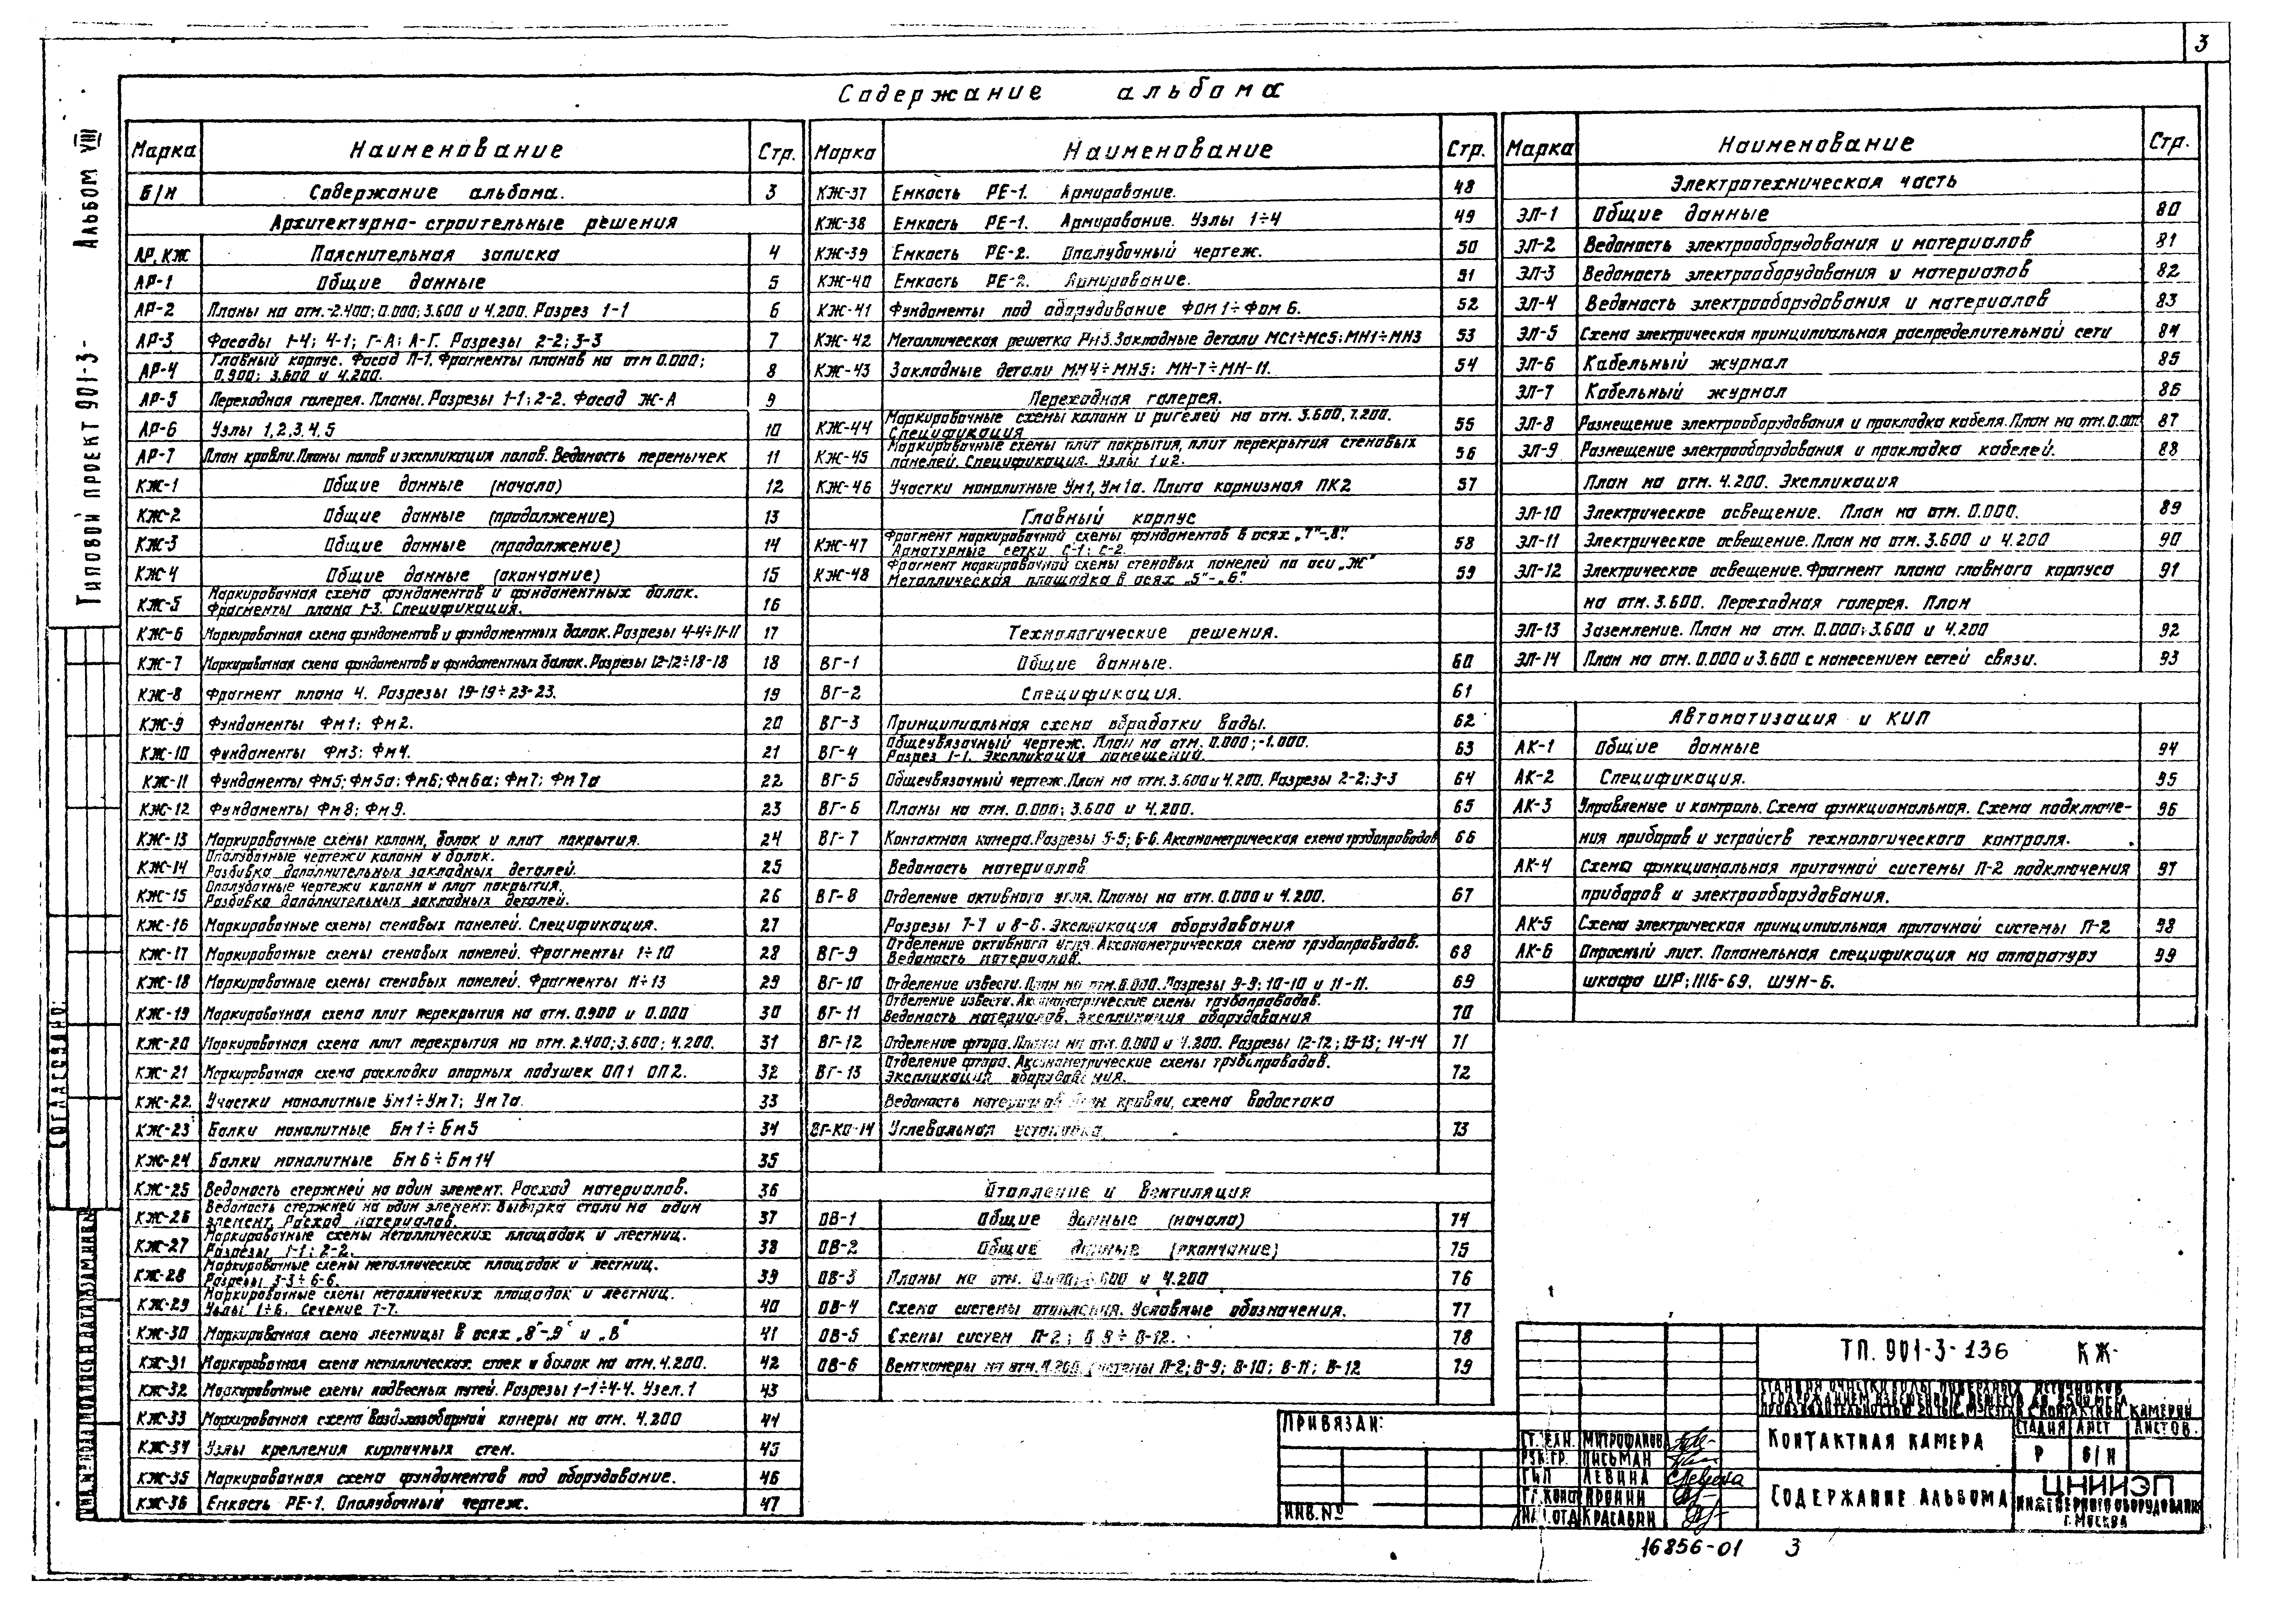 3
Содержание альбома
Альбом VIII
Типовой проект 901-3-
Марка Наименование Стр.
Б/Н Содержание альбома. 3
Архитектурно-строительные решения
АР, КЖ Пояснительная записка 4
АР-1 Общие данные 5
АР-2 Планы на отм.-2.400; 0.000; 3.600 и 4.200. Разрез 1-1 6
АР-3 Фасады 1-4; 4-1; Г-А; А-Г. Разрезы 2-2; 3-3 7
АР-4 Главный корпус. Фасад П-1. Фрагменты планов на отм 0.000;
0.900; 3.600 и 4.200. 8
АР-5 Переходная галерея. Планы. Разрезы 1-1; 2-2. Фасад Ж-А 9
АР-6 Узлы 1,2,3,4,5 10
АР-7 План кровли. Планы полов и экспликация полов. Ведомость перемычек 11
КЖ-1 Общие данные (начало) 12
КЖ-2 Общие данные (продолжение) 13
КЖ-3 Общие данные (продолжение) 14
КЖ-4 Общие данные (окончание) 15
КЖ-5 Маркировочная схема фундаментов и фундаментных балок.
Фрагменты плана 1-3. Спецификация. 16
КЖ-6 Маркировочная схема фундаментов и фундаментных балок. Разрезы 4-4÷11-11 17
КЖ-7 Маркировочная схема фундаментов и фундаментных балок. Разрезы 12-12÷18-18 18
КЖ-8 Фрагмент плана 4. Разрезы 19-19÷23-23. 19
КЖ-9 Фундаменты Фм1; Фм2. 20
КЖ-10 Фундаменты Фм3; Фм4. 21
КЖ-11 Фундаменты Фм5; Фм5а; Фм6; Фм6а; Фм7; Фм7а 22
КЖ-12 Фундаменты Фм8; Фм9. 23
КЖ-13 Маркировочные схемы колонн, балок и плит покрытия. 24
КЖ-14 Опалубочные чертежи колонн и балок.
Разбивка дополнительных закладных деталей. 25
КЖ-15 Опалубочные чертежи колонн и плит покрытия.
Разбивка дополнительных закладных деталей. 26
КЖ-16 Маркировочные схемы стеновых панелей. Спецификация. 27
КЖ-17 Маркировочные схемы стеновых панелей. Фрагменты 1÷10 28
КЖ-18 Маркировочные схемы стеновых панелей. Фрагменты 11÷13 29
КЖ-19 Маркировочная схема плит перекрытия на отм. 0.900 и 0.000 30
КЖ-20 Маркировочная схема плит перекрытия на отм. 2.400; 3.600; 4.200. 31
КЖ-21 Маркировочная схема раскладки опорных подушек ОП1 ОП2. 32
КЖ-22 Участки монолитные Ум1÷Ум7; Ум7а. 33
КЖ-23 Балки монолитные Бм1÷Бм5 34
КЖ-24 Балки монолитные Бм6÷Бм14 35
КЖ-25 Ведомость стержней на один элемент. Расход материалов. 36
КЖ-26 Ведомость стержней на один элемент. Выборка стали на один
элемент. Расход материалов. 37
КЖ-27 Маркировочные схемы металлических площадок и лестниц.
Разрезы 1-1; 2-2. 38
КЖ-28 Маркировочные схемы металлических площадок и лестниц.
Разрезы 3-3÷6-6. 39
КЖ-29 Маркировочные схемы металлических площадок и лестниц.
Узлы 1÷6. Сечение 7-7. 40
КЖ-30 Маркировочная схема лестницы в осях „8"-„9" и „В" 41
КЖ-31 Маркировочная схема металлическая стоек и балок на отм. 4.200. 42
КЖ-32 Маркировочные схемы подвесных путей. Разрезы 1-1÷4-4. Узел.1 43
КЖ-33 Маркировочная схема воздухозаборной камеры на отм. 4.200 44
КЖ-34 Узлы крепления кирпичных стен. 45
КЖ-35 Маркировочная схема фундаментов под оборудование. 46
КЖ-36 Емкость РЕ-1. Опалубочный чертеж. 47
Марка Наименование Стр.
КЖ-37 Емкость РЕ-1. Армирование. 48
КЖ-38 Емкость РЕ-1. Армирование. Узлы 1÷4 49
КЖ-39 Емкость РЕ-2. Опалубочный чертеж. 50
КЖ-40 Емкость РЕ-2. Армирование. 51
КЖ-41 Фундаменты под оборудование Фом1÷Фом6. 52
КЖ-42 Металлическая решетка Рм3. Закладные детали МС1÷МС5; МН1÷МН3 53
КЖ-43 Закладные детали МН4÷МН5; МН-7÷МН-11. 54
Переходная галерея.
КЖ-44 Маркировочные схемы колонн и ригелей на отм. 3.600, 7.200.
Спецификация 55
КЖ-45 Маркировочные схемы плит покрытия, плит перекрытия стеновых
панелей. Спецификация. Узлы 1 и 2. 56
КЖ-46 Участки монолитные Ум1, Ум1а. Плита карнизная ПК2 57
Главный корпус
КЖ-47 Фрагмент маркировочной схемы фундаментов в осях „7"-„8".
Арматурные сетки С-1; С-2. 58
КЖ-48 Фрагмент маркировочной схемы стеновых панелей по оси „Ж"
Металлическая площадка в осях „5"-„6" 59
Технологические решения.
ВГ-1 Общие данные. 60
ВГ-2 Спецификация. 61
ВГ-3 Принципиальная схема обработки воды. 62
ВГ-4 Общеувязочный чертеж. План на отм. 0.000; -1.000.
Разрез 1-1. Экспликация помещений. 63
ВГ-5 Общеувязочный чертеж. План на отм. 3.600 и 4.200. Разрезы 2-2; 3-3 64
ВГ-6 Планы на отм. 0.000; 3.600 и 4.200. 65
ВГ-7 Контактная камера. Разрезы 5-5; 6-6. Аксонометрическая схема трубопроводов 66
Ведомость материалов
ВГ-8 Отделение активного угля. Планы на отм. 0.000 и 4.200. 67
Разрезы 7-7 и 8-8. Экспликация оборудования
ВГ-9 Отделение активного угля. Аксонометрическая схема трубопроводов.
Ведомость материалов. 68
ВГ-10 Отделение извести. План на отм. 0.000. Разрезы 9-9; 10-10 и 11-11. 69
ВГ-11 Отделение извести. Аксонометрические схемы трубопроводов.
Ведомость материалов. Экспликация оборудования 70
ВГ-12 Отделение фтора. Планы на отм. 0.000 и 4.200. Разрезы 12-12; 13-13; 14-14 71
ВГ-13 Отделение фтора. Аксонометрические схемы трубопроводов.
Экспликация оборудования. 72
Ведомость материалов План кровли, схема водостока
ВГ-КО-14 Углевальная установка 73
Отопление и вентиляция
ОВ-1 Общие данные (начало) 74
ОВ-2 Общие данные (окончание) 75
ОВ-3 Планы на отм. 0.000; 3.600 и 4.200 76
ОВ-4 Схема системы отопления. Условные обозначения. 77
ОВ-5 Схемы систем П-2; В 9÷В-12. 78
ОВ-6 Венткамеры на отм. 4.200. Системы П-2; В-9; В-10; В-11; В-12 79
Марка Наименование Стр.
Электротехническая часть
ЭЛ-1 Общие данные 80
ЭЛ-2 Ведомость электрооборудования и материалов 81
ЭЛ-3 Ведомость электрооборудования и материалов 82
ЭЛ-4 Ведомость электрооборудования и материалов 83
ЭЛ-5 Схема электрическая принципиальная распределительной сети 84
ЭЛ-6 Кабельный журнал 85
ЭЛ-7 Кабельный журнал 86
ЭЛ-8 Размещение электрооборудования и прокладка кабеля. План на отм. 0.000 87
ЭЛ-9 Размещение электрооборудования и прокладка кабелей. 88
План на отм. 4.200. Экспликация
ЭЛ-10 Электрическое освещение. План на отм. 0.000. 89
ЭЛ-11 Электрическое освещение. План на отм. 3.600 и 4.200 90
ЭЛ-12 Электрическое освещение. Фрагмент плана главного корпуса 91
на отм. 3.600. Переходная галерея. План
ЭЛ-13 Заземление. План на отм. 0.000; 3.600 и 4.200 92
ЭЛ-14 План на отм. 0.000 и 3.600 с нанесением сетей связи. 93
Автоматизация и КИП
АК-1 Общие данные 94
АК-2 Спецификация. 95
АК-3 Управление и контроль. Схема функциональная. Схема подключе- 96
ния приборов и устройств технологического контроля.
АК-4 Схема функциональная приточной системы П-2 подключения 97
приборов и электрооборудования.
АК-5 Схема электрическая принципиальная приточной системы П-2 98
АК-6 Опросный лист. Попанельная спецификация на аппаратуру 99
шкафа ШР; 1116-69, ШУН-6.
Согласовано:
Инв.№ подл. Подпись и дата Взам.инв.№
Привязан:
Инв.№
ТП. 901-3-136 КЖ-
Станция очистки воды поверхных источников
с содержанием взвешенных веществ до 2500 мг/л
производительностью 20 тыс. с контактной камерой
Ст. Инж. Митрофанова
Рук. гр. Письман
ГИП Левина
Гл. конст Иронин
Нач. отд Красавин
Контактная камера
Стадия Лист Листов.
Р Б/Н
Содержание альбома
ЦНИИЭП
инженерного оборудования
г. Москва
16856-01 3